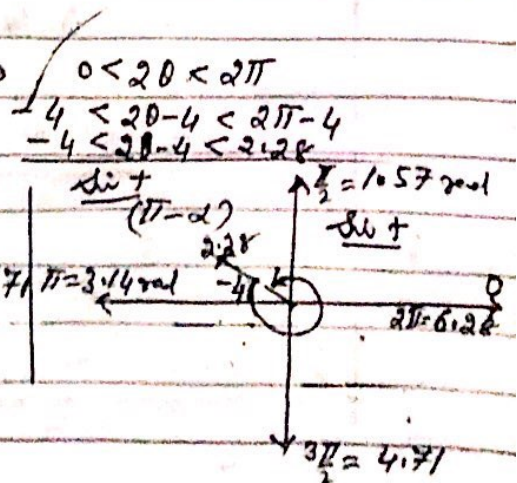 0 < 2θ < 2π
-4 < 2θ-4 < 2π-4
-4 < 2θ-4 < 2.28
Si +
(π-α)
π/2 = 1.57 rad
Si +
2.28
-4
7
π = 3.14 rad
0
2π = 6.28
3π/2 = 4.71